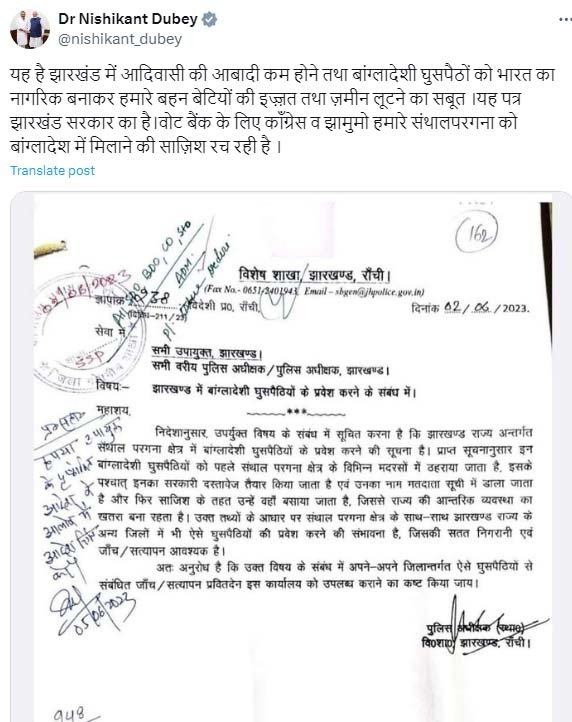 Dr Nishikant Dubey
@nishikant_dubey
यह है झारखंड में आदिवासी की आबादी कम होने तथा बांग्लादेशी घुसपैठों को भारत का
नागरिक बनाकर हमारे बहन बेटियों की इज़्ज़त तथा ज़मीन लूटने का सबूत ।यह पत्र
झारखंड सरकार का है।वोट बैंक के लिए काँग्रेस व झामुमो हमारे संथालपरगना को
बांग्लादेश में मिलाने की साज़िश रच रही है ।
Translate post
162
विशेष शाखा, झारखण्ड, राँची।
(Fax No.- 0651-2401943, Email – sbgen@jhpolice.gov.in)
ज्ञापांक 38 विदेशी प्र0, राँची, दिनांक 02/06/2023.
(विदेशी-211/23)
सेवा में
SSP
सभी उपायुक्त, झारखण्ड।
सभी वरीय पुलिस अधीक्षक/पुलिस अधीक्षक, झारखण्ड।
विषयः- झारखण्ड में बांग्लादेशी घुसपैठियों के प्रवेश करने के संबंध में।
महाशय,
***
निदेशानुसार, उपर्युक्त विषय के संबंध में सूचित करना है कि झारखण्ड राज्य अन्तर्गत
संथाल परगना क्षेत्र में बांग्लादेशी घुसपैठियों के प्रवेश करने की सूचना है। प्राप्त सूचनानुसार इन
बांग्लादेशी घुसपैठियों को पहले संथाल परगना क्षेत्र के विभिन्न मदरसों में ठहराया जाता है, इसके
पश्चात् इनका सरकारी दस्तावेज तैयार किया जाता है एवं उनका नाम मतदाता सूची में डाला जाता
है और फिर साजिश के तहत उन्हें वहीं बसाया जाता है, जिससे राज्य की आन्तरिक व्यवस्था का
खतरा बना रहता है। उक्त तथ्यों के आधार पर संथाल परगना क्षेत्र के साथ-साथ झारखण्ड राज्य के
अन्य जिलों में भी ऐसे घुसपैठियों की प्रवेश करने की संभावना है, जिसकी सतत निगरानी एवं
जाँच/सत्यापन आवश्यक है।
अतः अनुरोध है कि उक्त विषय के संबंध में अपने-अपने जिलान्तर्गत ऐसे घुसपैठियों से
संबंधित जाँच/सत्यापन प्रवितदेन इस कार्यालय को उपलब्ध कराने का कष्ट किया जाय।
05/06/2023
पुलिस अधीक्षक
वि0शा0, झारखण्ड, राँची।
948